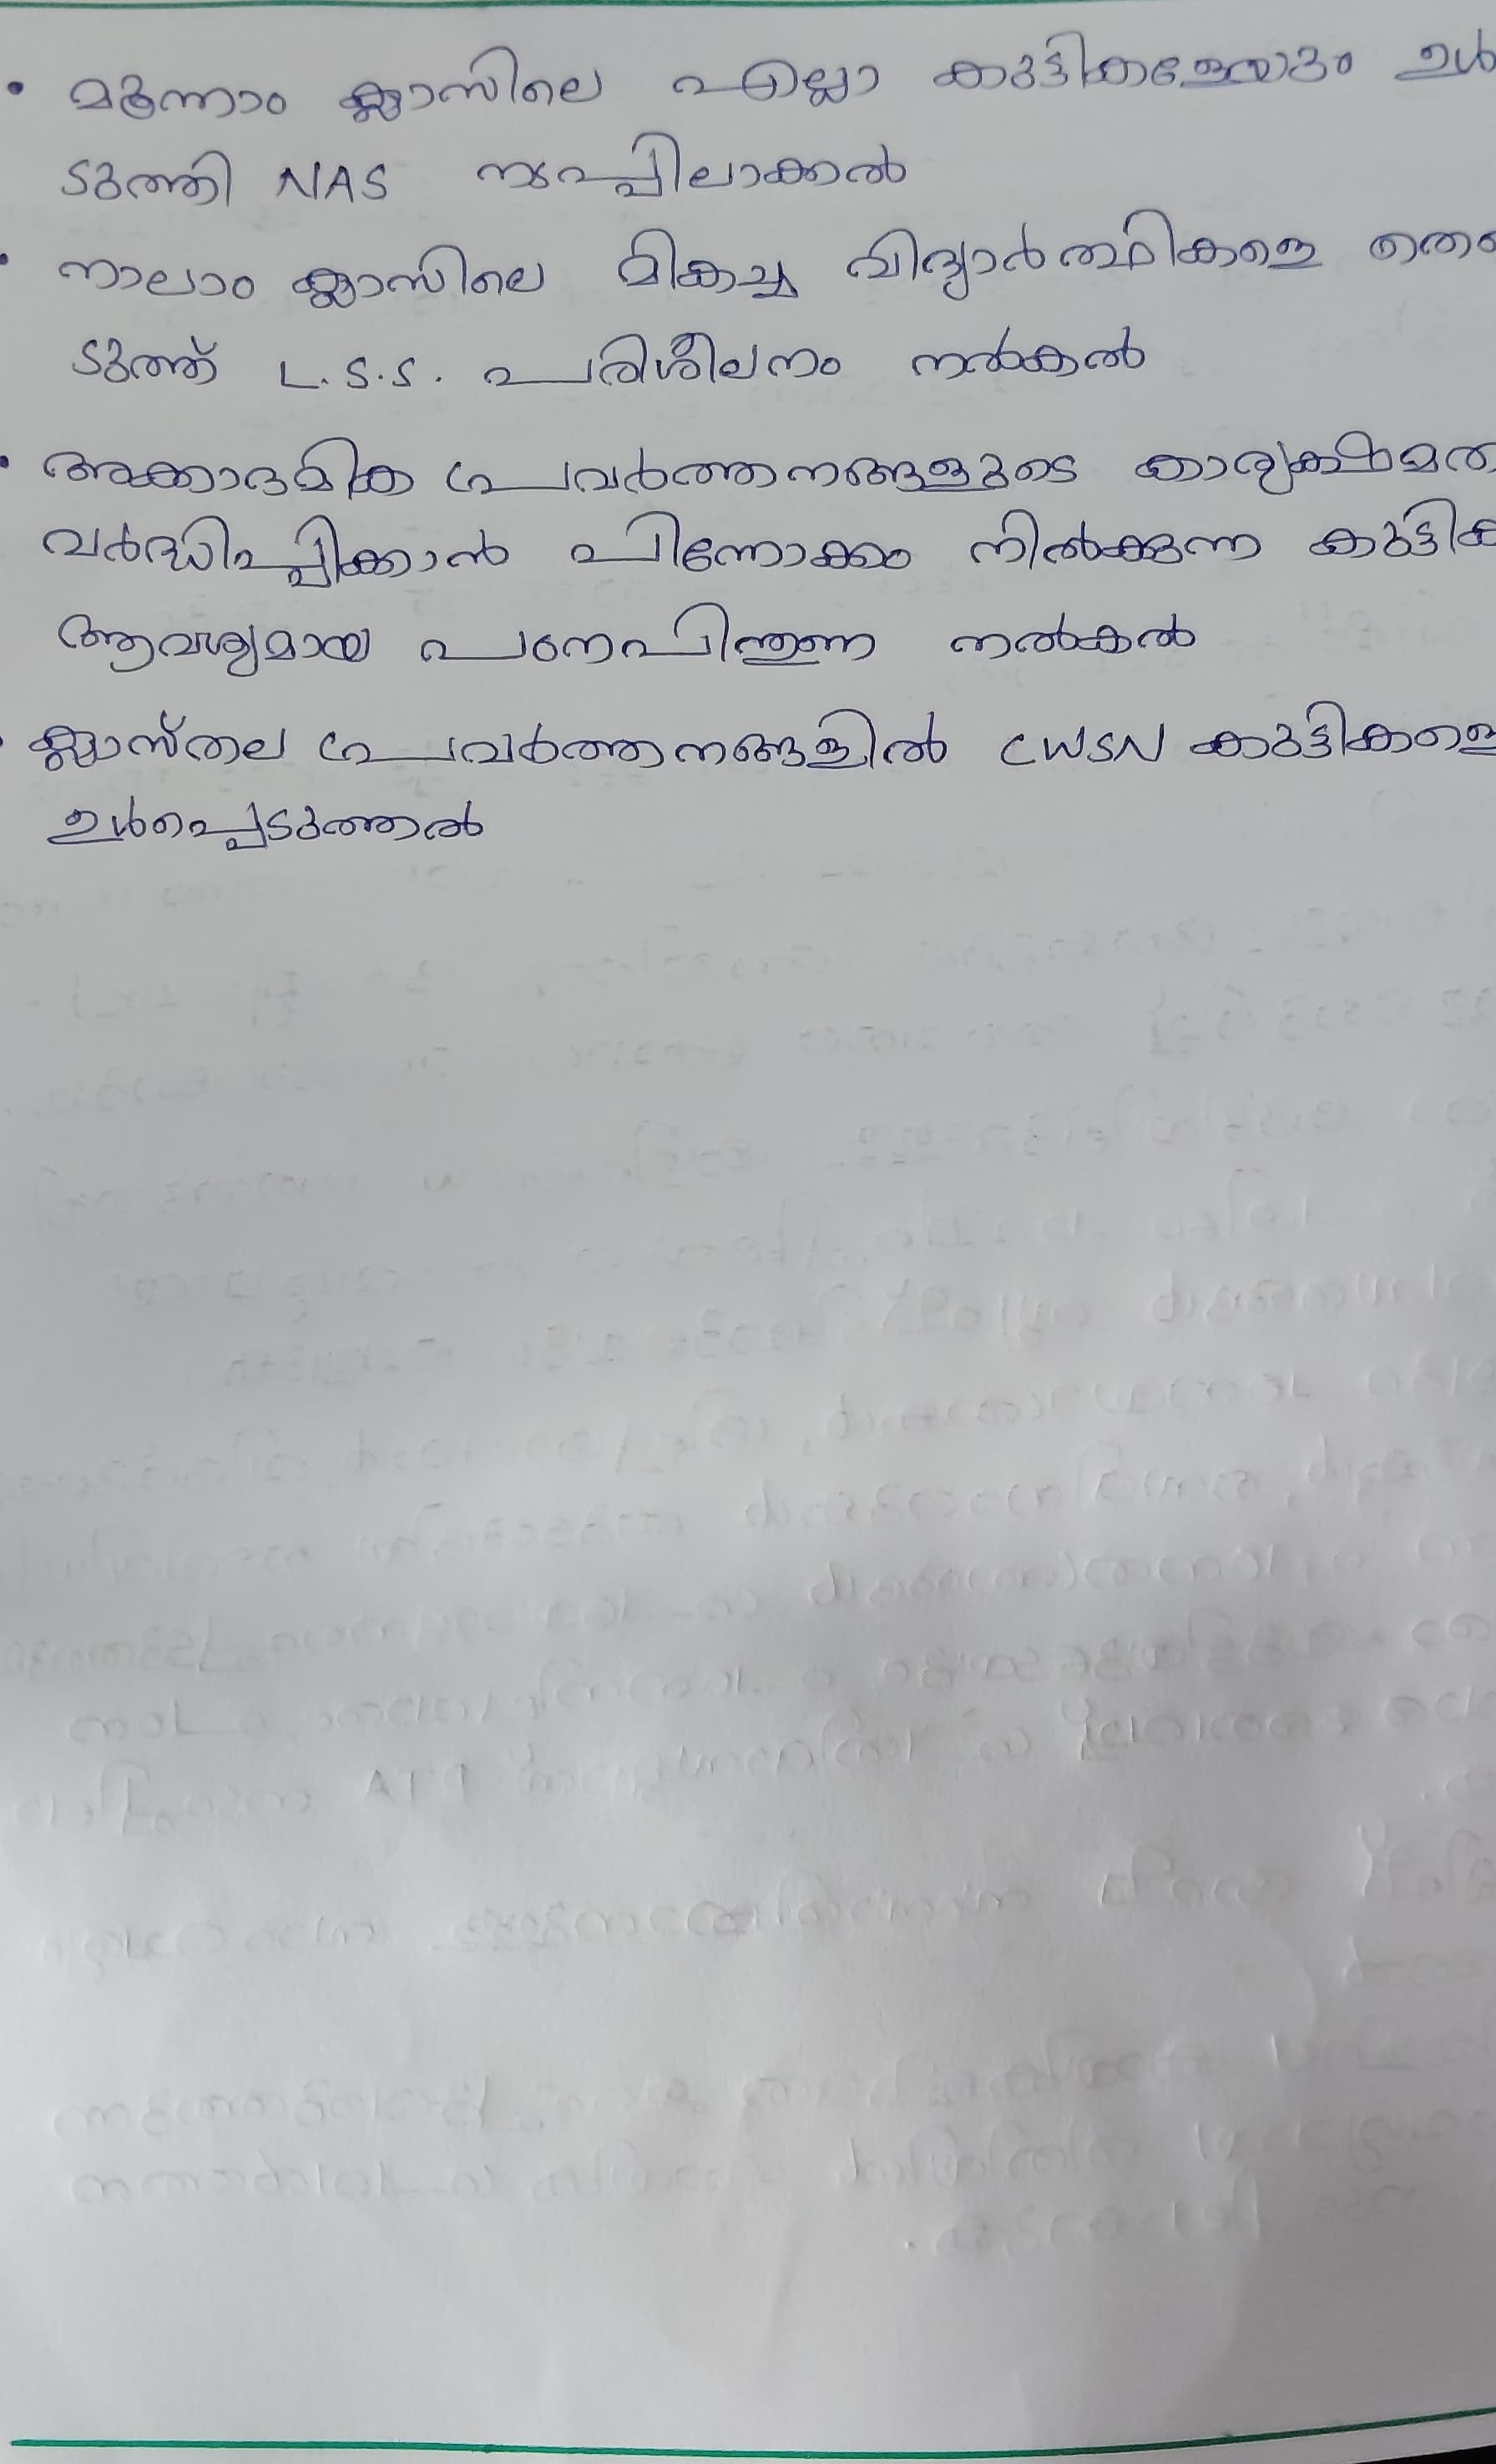 • മൂന്നാം ക്ലാസിലെ എല്ലാ കുട്ടികളേയും ഉൾ
ടുത്തി NAS നടപ്പിലാക്കൽ
• നാലാം ക്ലാസിലെ മികച്ച വിദ്യാർത്ഥികളെ തെര
ടുത്ത് L.S.S. പരിശീലനം നൽകൽ
• അക്കാദമിക പ്രവർത്തനങ്ങളുടെ കാര്യക്ഷമത
വർദ്ധിപ്പിക്കാൻ പിന്നോക്കം നിൽക്കുന്ന കുട്ടിക
ആവശ്യമായ പഠനപിന്തുണ നൽകൽ
• ക്ലാസ്തല പ്രവർത്തനങ്ങളിൽ CWSN കുട്ടികളെ
ഉൾപ്പെടുത്തൽ